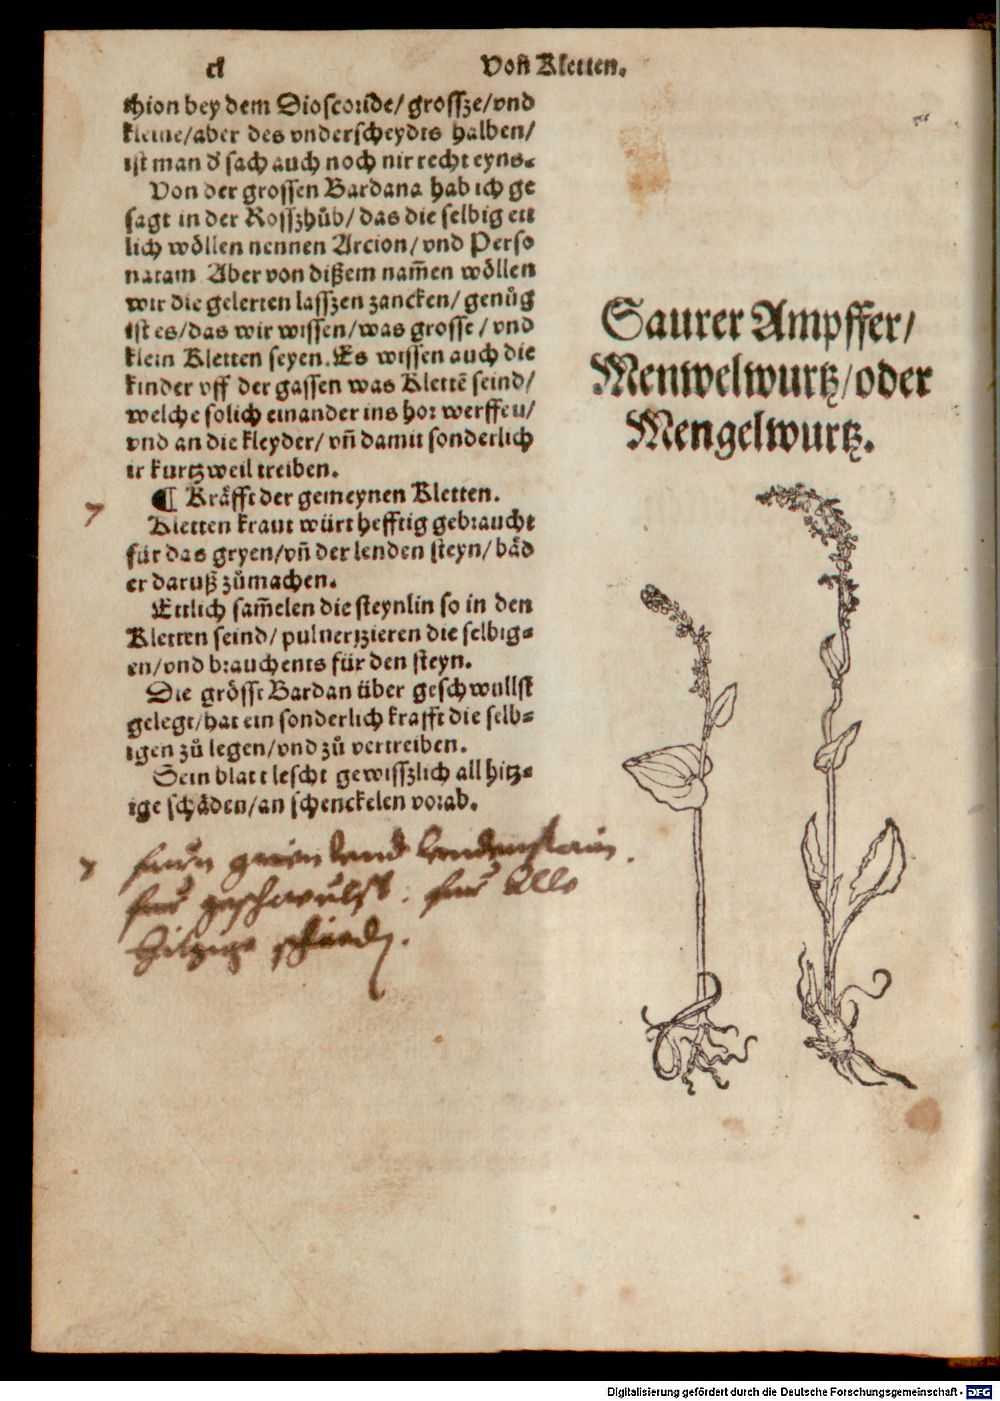 ck
Von Kletten.
thion bey dem Dioscoride/ grossze/ vnd
kleine/ aber des vnderscheydts halben/
ist man d' sach auch noch nit recht eyns.
Von der grossen Bardana hab ich ge
sagt in der Rosszhůb/ das die selbig ett
lich wöllen nennen Arcion/ vnd Perso
natam Aber von dißem nam̃en wöllen
wir die gelerten lasszen zancken/ genůg
ist es/ das wir wissen/ was grosse / vnd
klein Kletten seyen. Es wissen auch die
kinder vff der gassen was Klettẽ seind/
welche solich einander ins hor werffen/
vnd an die kleyder/ vñ damit sonderlich
ir kurtzweil treiben.
¶ Kräfft der gemeynen Kletten.
Kletten kraut würt hefftig gebraucht
für das gryen/ vñ der lenden steyn/ bäd
er daruß zůmachen.
Ettlich sam̃elen die steynlin so in den
Kletten seind/ puluerizieren die selbig-
en/ vnd brauchents für den steyn.
Die grösst Bardan über geschwullst
gelegt/ hat ein sonderlich krafft die selb-
igen zů legen/ vnd zů vertreiben.
Sein blatt lescht gewisszlich all hitz-
ige schäden/ an schenckelen vorab.
lendenstain.
fur geschwulst. fur alle
hitzige schäd
Saurer Ampffer/
Menwelwurtz/ oder
Mengelwurtz.
Digitalisierung gefördert durch die Deutsche Forschungsgemeinschaft - DFG